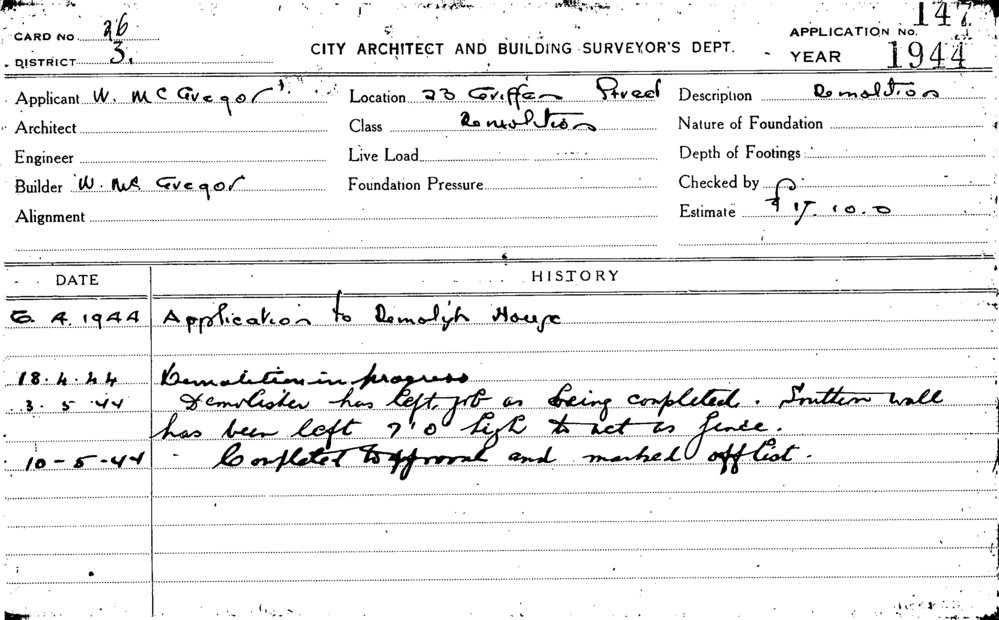 CARD No. 26
APPLICATION No. 147
DISTRICT 3.
CITY ARCHITECT AND BUILDING SURVEYOR'S DEPT.
YEAR 1944
Applicant W. McGregor Location 23 Griffen Street Description Demolition
Architect Class Demolition Nature of Foundation
Engineer Live Load Depth of Footings
Builder W. McGregor Foundation Pressure Checked by
Alignment Estimate £17.10.0
DATE HISTORY
6. 4. 1944 Application to Demolish House
18. 4. 44 Demolition in progress
3. 5. 44 Demolisher has left job as being completed. Southern wall
has been left 7'0 high to act as fence.
10-5-44 Completed to approval and marked off list.